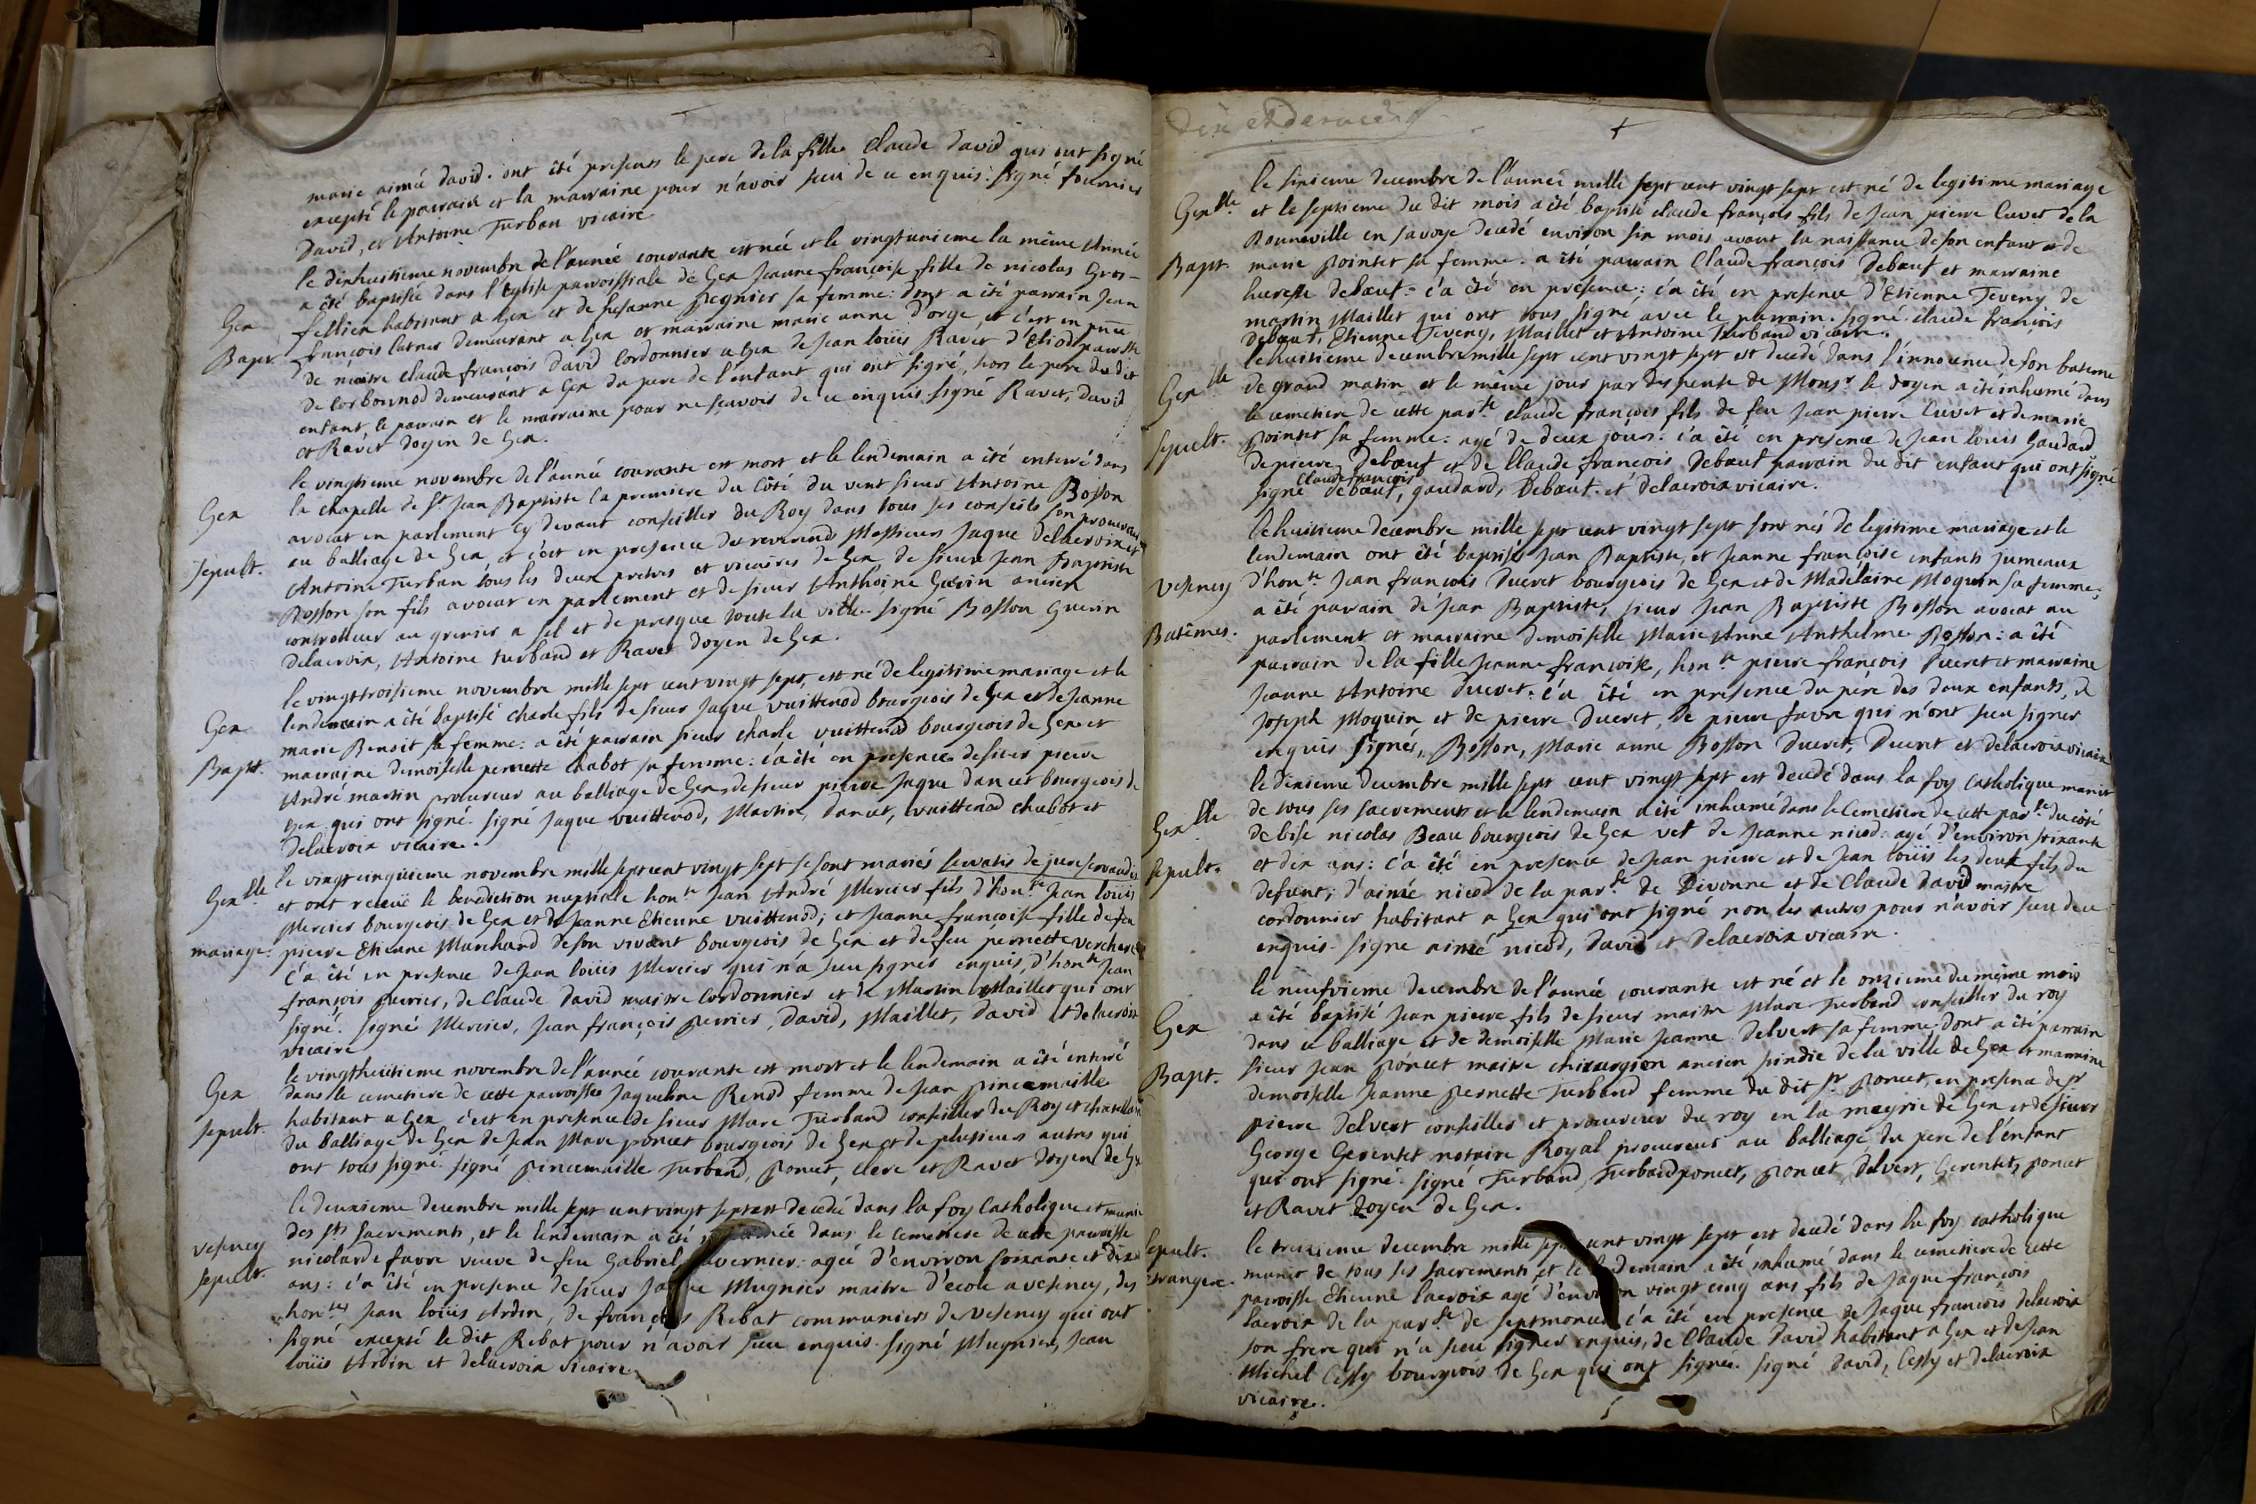 marie aimée david. ont été presents le pere de la fille Claude David qui ont signé
excepté le parrain et la marraine pour n'avoir sceu de ce enquis. signé fournier
David, et Antoine Turban vicaire
le dixhuitieme novembre de l'année courante est née et le vingtunieme la même Année
a été baptisée dans l'Eglise parroissiale de Gex Jeanne françoise fille de nicolas Gros-
Gex
fillien habitant a Gex et de Susanne Regnier sa femme: dont a été parrain Jean
Bapt.
françois demeurant a Gex et marraine marie anne D'orge, et c'est en
de maitre claude françois david Cordonnier a Gex de Jean loüis Ravet d'
de Corbonnod demeurant a Gex du pere de l'enfant qui ont signé, hors le pere du dit
enfant, le parrain et la marraine pour ne scavoir de ce enquis. signé Ravet, David
et Ravet doyen de Gex.
le vingtieme novembre de l'année courante est mort et le lendemain a été enterré dans
Gex
la chapelle de St Jean Baptiste la premiere du Côté du vent sieur Antoine Bosson
avocat en parlement Cy devant conseiller du Roy dans tous ses conseils son procureur
Sepult.
au balliage de Gex et c'est en presence des reverends Messieurs Jaque Delacroix et
Antoine Turban tous les deux pretres et vicaires de Gex de sieur Jean Baptiste
Bosson son fils avocat en parlement et de sieur Anthoine Guerin ancien
controlleur au grenier a sel et de presque toute la ville. signé Bosson Guerin
delacroix, Antoine turband et Ravet doyen de Gex.
le vingttroisieme novembre mille sept cent vingt sept, est né de legitime mariage et le
Gex
lendemain a été baptisé charle fils de sieur Jaque vuittenod bourgeois de Gex et de Jeanne
marie Benoit sa femme: a été parrain sieur charle vuittenod bourgeois de Gex et
Bapt.
marraine demoiselle pernette chabot sa femme: ç'a été en presence de sieur pierre
André martin procureur au balliage de Gex, de sieur pierre Jaque dancet bourgeois de
Gex qui ont signé. signé Jaque vuittenod, Martin, dancet, vuittenod chabot et
delacroix vicaire.
Gexlle
le vingtcinquieme novembre mille sept cent vingt sept se sont mariés servatis de jure servandis
et ont receü le benediction nuptiale honte Jean André Mercier fils d'honte Jean loüis
Mercier bourgeois de Gex et de Jeanne Etienne vuittenod; et Jeanne françoise fille de feu
mariage.
pierre Etienne Marchand de son vivant bourgeois de Gex et de feu pernette
ç'a été en presence de Jean loüis Mercier qui n'a sceu signer enquis, d'honte Jean
françois perrier, de Claude David maitre Cordonnier et de Martin Maillet qui ont
signé. signé Mercier, Jean françois perrier, David, Maillet, David et delacroix
vicaire
le vingthuitieme novembre de l'année courante est mort et le lendemain a été enterré
Gex
dans le cemetiere de cette parroisse Jaqueline Renod femme de Jean pincemaille
Sepult.
habitant a Gex c'est en presence de sieur Marc Turband conseiller du Roy et chatellain
du balliage de Gex de Jean Marc poncet bourgeois de Gex et de plusieurs autres qui
ont tous signé. signé pincemaille Turband, poncet, Clerc et Ravet doyen de Gex
le deuxieme decembre mille sept cent vingt sept est decedé dans la foy Catholique et munie
des sts sacrements, et le lendemain a été inhumée dans le cemetiere de cette parroisse
vesency
nicolarde favre veuve de feu Gabriel agée d'environ soixante et dix
Sepult.
ans: ç'a été en presence de sieur Jaque Mugnier maitre d'ecole a vesency, des
hontes Jean loüis Ardin, de françois Ribat communiers de vesency qui ont
signé excepté le dit Ribat pour n'avoir sceu enquis. signé Mugnier, Jean
loüis Ardin et delacroix vicaire
le sixieme decembre de l'année mille sept cent vingt sept est né de legitime mariage
Gexlle
et le septieme du dit mois a été baptisé claude françois fils de Jean pierre Cuvet de la
Bonneville en savoye decedé environ six mois avant la naissance de son enfant et de
Bapt.
marie pointet sa femme. a été parrain Claude françois Debœuf et marraine
debœuf. ç'a été en présence: ç'a été en presence d'Etienne Teveny, de
martin Maillet qui ont tous signé avec le parrain. signé claude françois
debœuf, Etienne Teveny, Maillet et Antoine Turband vicaire.
le huitieme decembre mille sept cent vingt sept est decedé dans l'innocence de son bateme
Gexlle
de grand matin et le même jour par dispense de Monsr le doyen a été inhumé dans
le cemetiere de cette parsse claude françois fils de feu Jean pierre Cuvet et de marie
Sepult.
pointet sa femme: agé de deux jours. ç'a été en presence de Jean louis Gaudard
de pierre Debœuf et de Claude francois Debœuf parrain du dit enfant qui ont signé
Claude françois
signé debœuf, gaudard, Debœuf et delacroix vicaire.
le huitieme decembre mille sept cent vingt sept sont nés de legitime mariage et le
lendemain ont été baptisés Jean Baptiste, et Jeanne françoise enfants jumeaux
vesency
d'honte Jean francois Ducret bourgeois de Gex et de Madelaine Moquin sa femme,
a été parrain de Jean Baptiste, sieur Jean Baptiste Bosson avocat au
Batêmes.
parlement et marraine demoiselle Marie Anne Anthelme Bosson: a été
parrain de la fille Jeanne françoise, honte pierre françois Ducret et marraine
Jeanne Antoine Ducret: ç'a été en presence du pére des deux enfants, de
Joseph Moquin et de pierre Ducret, de pierre favre qui n'ont sceu signer
enquis signés, Bosson, Marie anne Bosson Ducret, Ducret et delacroix vicaire
le dixieme decembre mille sept cent vingt sept est decedé dans la foy Catholique munit
Gexlle
de tous ses sacrements et le lendemain a été inhumé dans le Cemetiere de cette parsse du côté
de bise nicolas Beau bourgeois de Gex vef de Jeanne nicod: agé d'environ soixante
Sepult.
et dix ans: ç'a été en presence de Jean pierre et de Jean loüis les deux fils du
defunt; d'aimé nicod de la parsse de Divonne et de Claude David maitre
cordonnier habitant a Gex qui ont signé non les autres pour n'avoir sceu de ce
enquis. signé aimé nicod, David et Delacroix vicaire.
le neufvieme decembre de l'année courante est né et le onzieme du même mois
Gex
a été baptisé Jean pierre fils de sieur maitre Marc Turband conseiller du roy
dans ce balliage et de demoiselle Marie Jeanne Delvert sa femme dont a été parrain
Bapt.
sieur Jean poncet maitre chirurgien ancien sindic de la ville de Gex et marraine
demoiselle Jeanne pernette Turband femme du dit sr poncet, en presence de sr
pierre Delvert conseiller et procureur du roy en la mayrie de Gex et de sieur
George Gerentet notaire Royal procureur au balliage du pere de l'enfant
qui ont signé. signé Turband, Turband poncet, poncet, Delvert, Gerentet, poncet
et Ravet doyen de Gex.
Sepult.
le treizieme decembre mille sept cent vingt sept est decedé dans la foy catholique
etrangere.
munit de tous ses sacrements et le lendemain a été inhumé dans le cemetiere de cette
parroisse Etienne lacroix agé d'environ vingt cinq ans fils de Jaque françois
lacroix de la parsse de septmoncel ç'a été en presence de Jaque francois delacroix
son frere qui n'a sceu signer enquis, de Claude David habitant a Gex et de Jean
Michel Cessy bourgeois de Gex qui ont signer. signé David, Cessy et delacroix
vicaire.